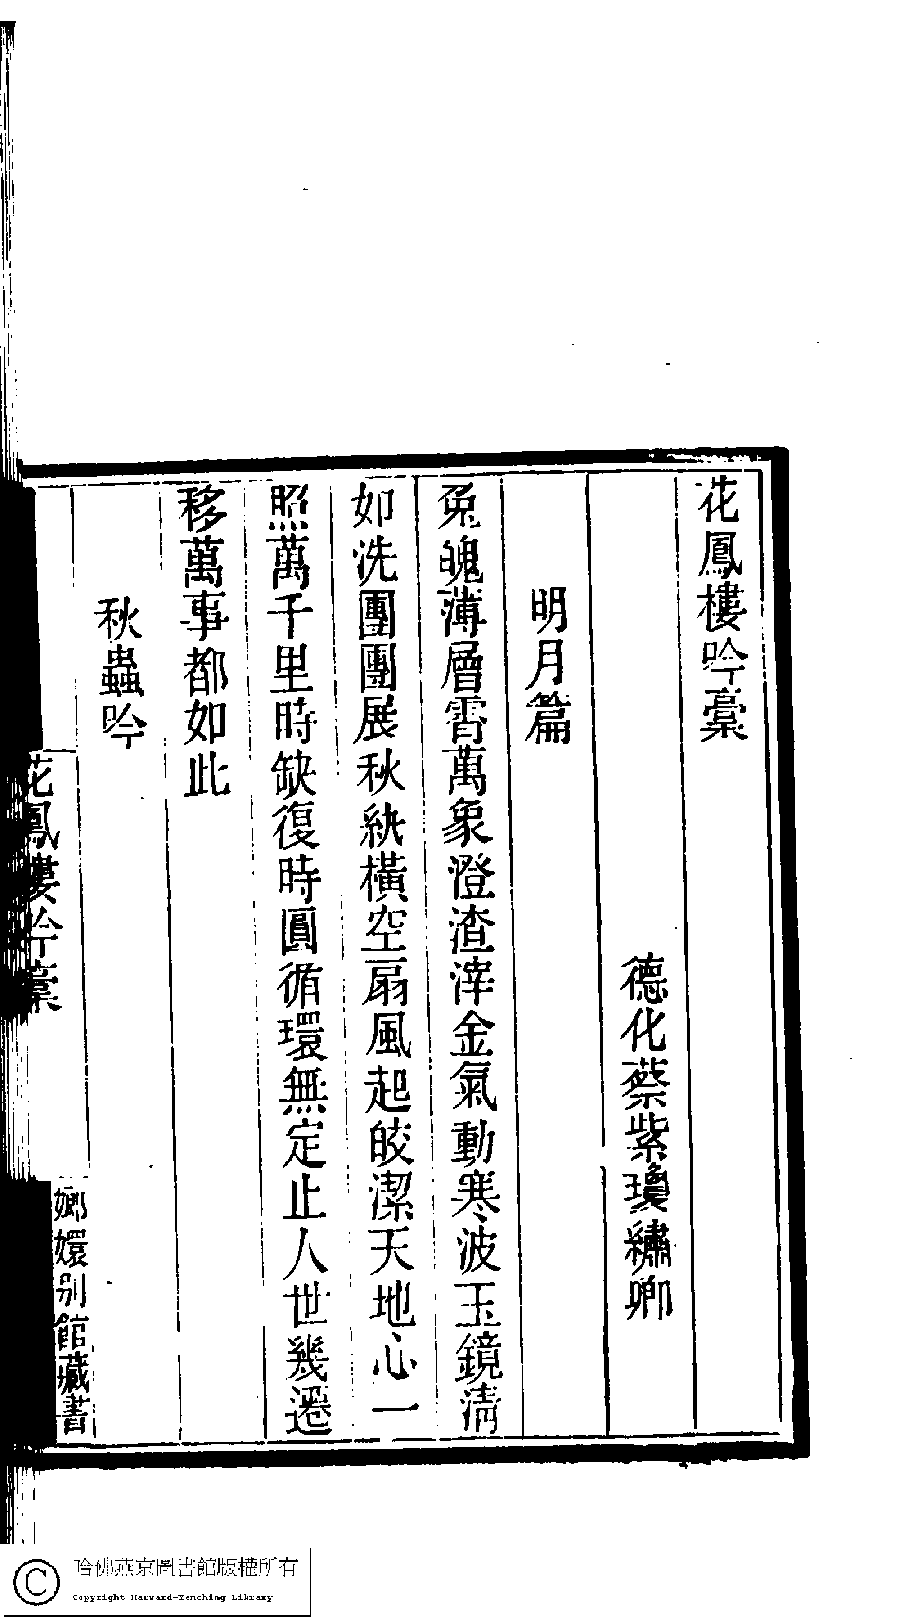 花鳳樓吟稾
德化蔡紫瓊繡卿
明月篇
兔魄薄層霄萬象澄渣滓金氣動寒波玉鏡清
如洗團團展秋紈橫空扇風起皎潔天地心一
照萬千里時缺復時圓循環無定止人世幾遷
移萬事都如此
秋蟲吟
花鳳樓吟稾
嫏嬛別館藏書
哈佛燕京圖書館版權所有
Copyright Harvard-Yenching Library